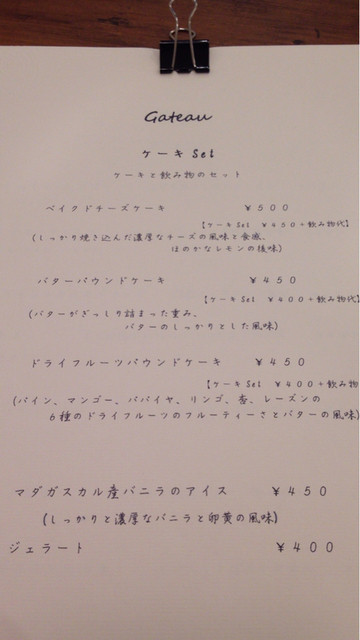 Gateau
ケーキ Set
ケーキと飲み物のセット
ベイクドチーズケーキ ￥５００
【ケーキSet ￥４５０＋飲み物代】
(しっかり焼き込んだ濃厚なチーズの風味と食感、
ほのかなレモンの後味)
バターパウンドケーキ ￥４５０
【ケーキSet ￥４００＋飲み物代】
(バターがぎっしり詰まった重み、
バターのしっかりとした風味)
ドライフルーツパウンドケーキ ￥４５０
【ケーキSet ￥４００＋飲み物
(パイン、マンゴー、パパイヤ、リンゴ、杏、レーズンの
６種のドライフルーツのフルーティーさとバターの風味)
マダガスカル産バニラのアイス ￥４５０
(しっかりと濃厚なバニラと卵黄の風味)
ジェラート ￥４００